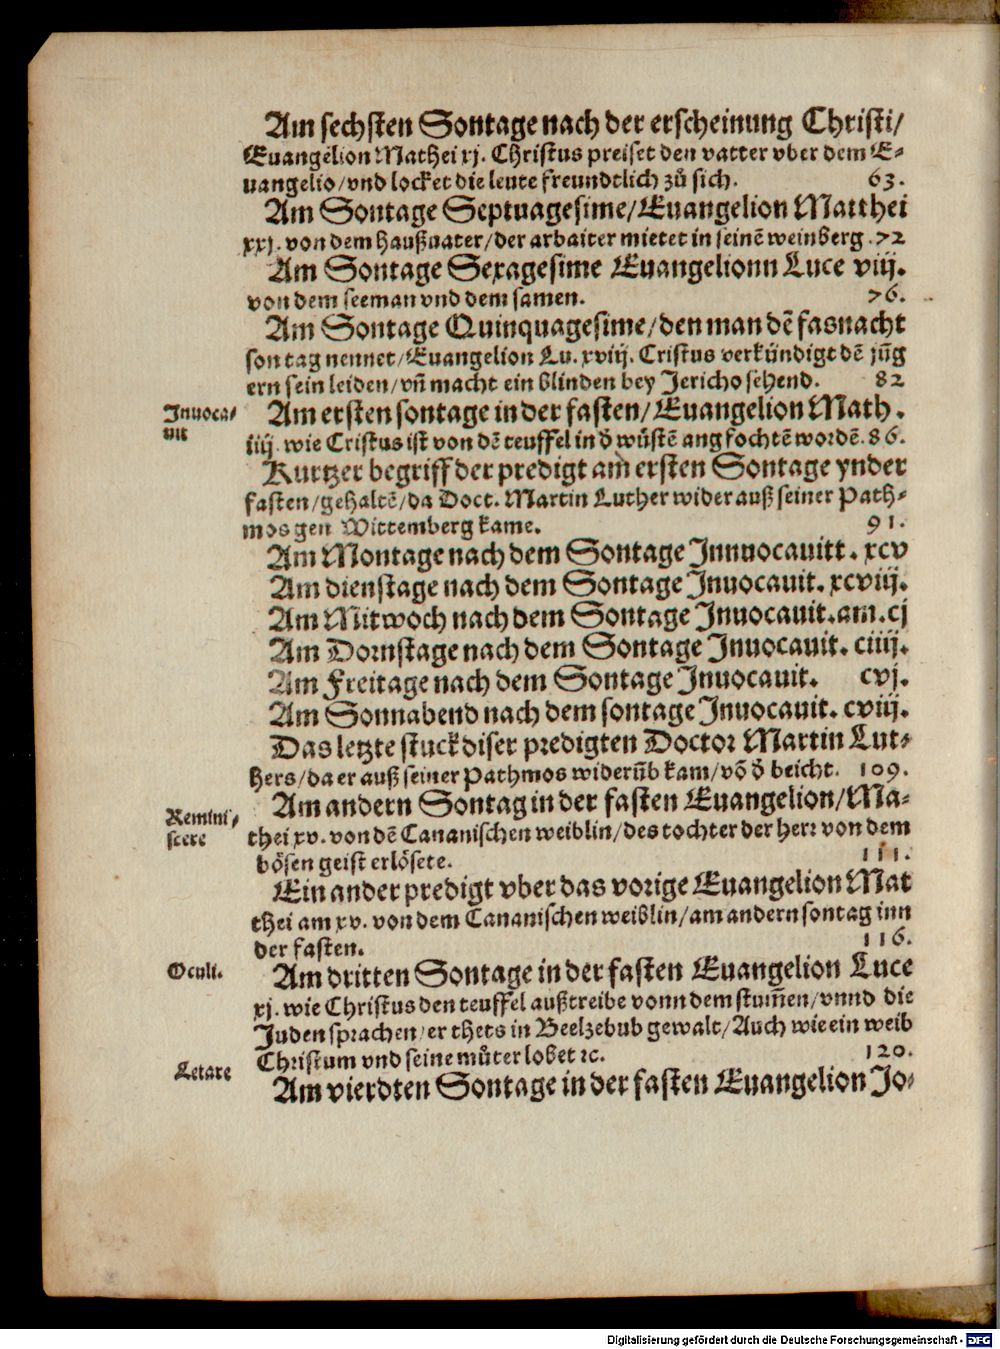 Am sechsten Sontage nach der erscheinung Christi/
Euangelion Mathei xj. Christus preiset den vatter vber dem E-
uangelio/vnd locket die leute freundtlich zů sich. 63.
Am Sontage Septuagesime/Euangelion Matthei
xxj. von dem haußuater/der arbaiter mietet in seinē weinberg .72
Am Sontage Sexagesime Euangelionn Luce viij.
von dem seeman vnd dem samen. 76.
Am Sontage Quinquagesime/den man dē fasnacht
sontag nennet/Euangelion Lu. xviij. Cristus verkündigt dē jūg
ern sein leiden/vn̄ macht ein blinden bey Jericho sehend. 82
Inuoca-
uit
Am ersten sontage in der fasten/Euangelion Math.
iiij. wie Cristus ist von dē teuffel in d̄ wüstē angfochtē wordē. 86.
Kurtzer begriff der predigt am ersten Sontage ynder
fasten/gehaltē/da Doct. Martin Luther wider auß seiner Path-
mos gen Wittemberg kame. 91.
Am Montage nach dem Sontage Innuocauitt. xcv
Am dienstage nach dem Sontage Inuocauit. xcviij.
Am Mitwoch nach dem Sontage Inuocauit.am.cj
Am Dornstage nach dem Sontage Inuocauit. ciiij.
Am Freitage nach dem Sontage Inuocauit. cvj.
Am Sonnabend nach dem sontage Inuocauit. cviij.
Das letzte stuck diser predigten Doctor Martin Lut-
hers/da er auß seiner Pathmos widerūb kam/vō d̄ beicht. 109.
Remini-
scere
Am andern Sontag in der fasten Euangelion/Ma-
thei xv. von dē Cananischen weiblin/des tochter der herr von dem
bösen geist erlösete. 111.
Ein ander predigt vber das vorige Euangelion Mat
thei am xv. von dem Cananischen weiblin/am andern sontag inn
der fasten. 116.
Oculi.
Am dritten Sontage in der fasten Euangelion Luce
xj. wie Christus den teuffel außtreibe vonn dem stum̄en/vnnd die
Juden sprachen/er thets in Beelzebub gewalt/Auch wie ein weib
Christum vnd seine můter lobet ꝛc. 120.
Letare
Am vierdten Sontage in der fasten Euangelion Jo-
Digitalisierung gefördert durch die Deutsche Forschungsgemeinschaft - DFG